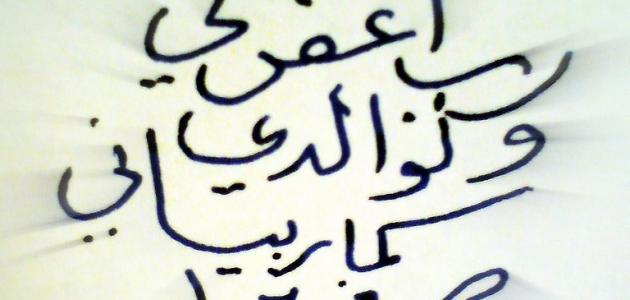 رب اغفر لي
ولوالدي
كما ربياني